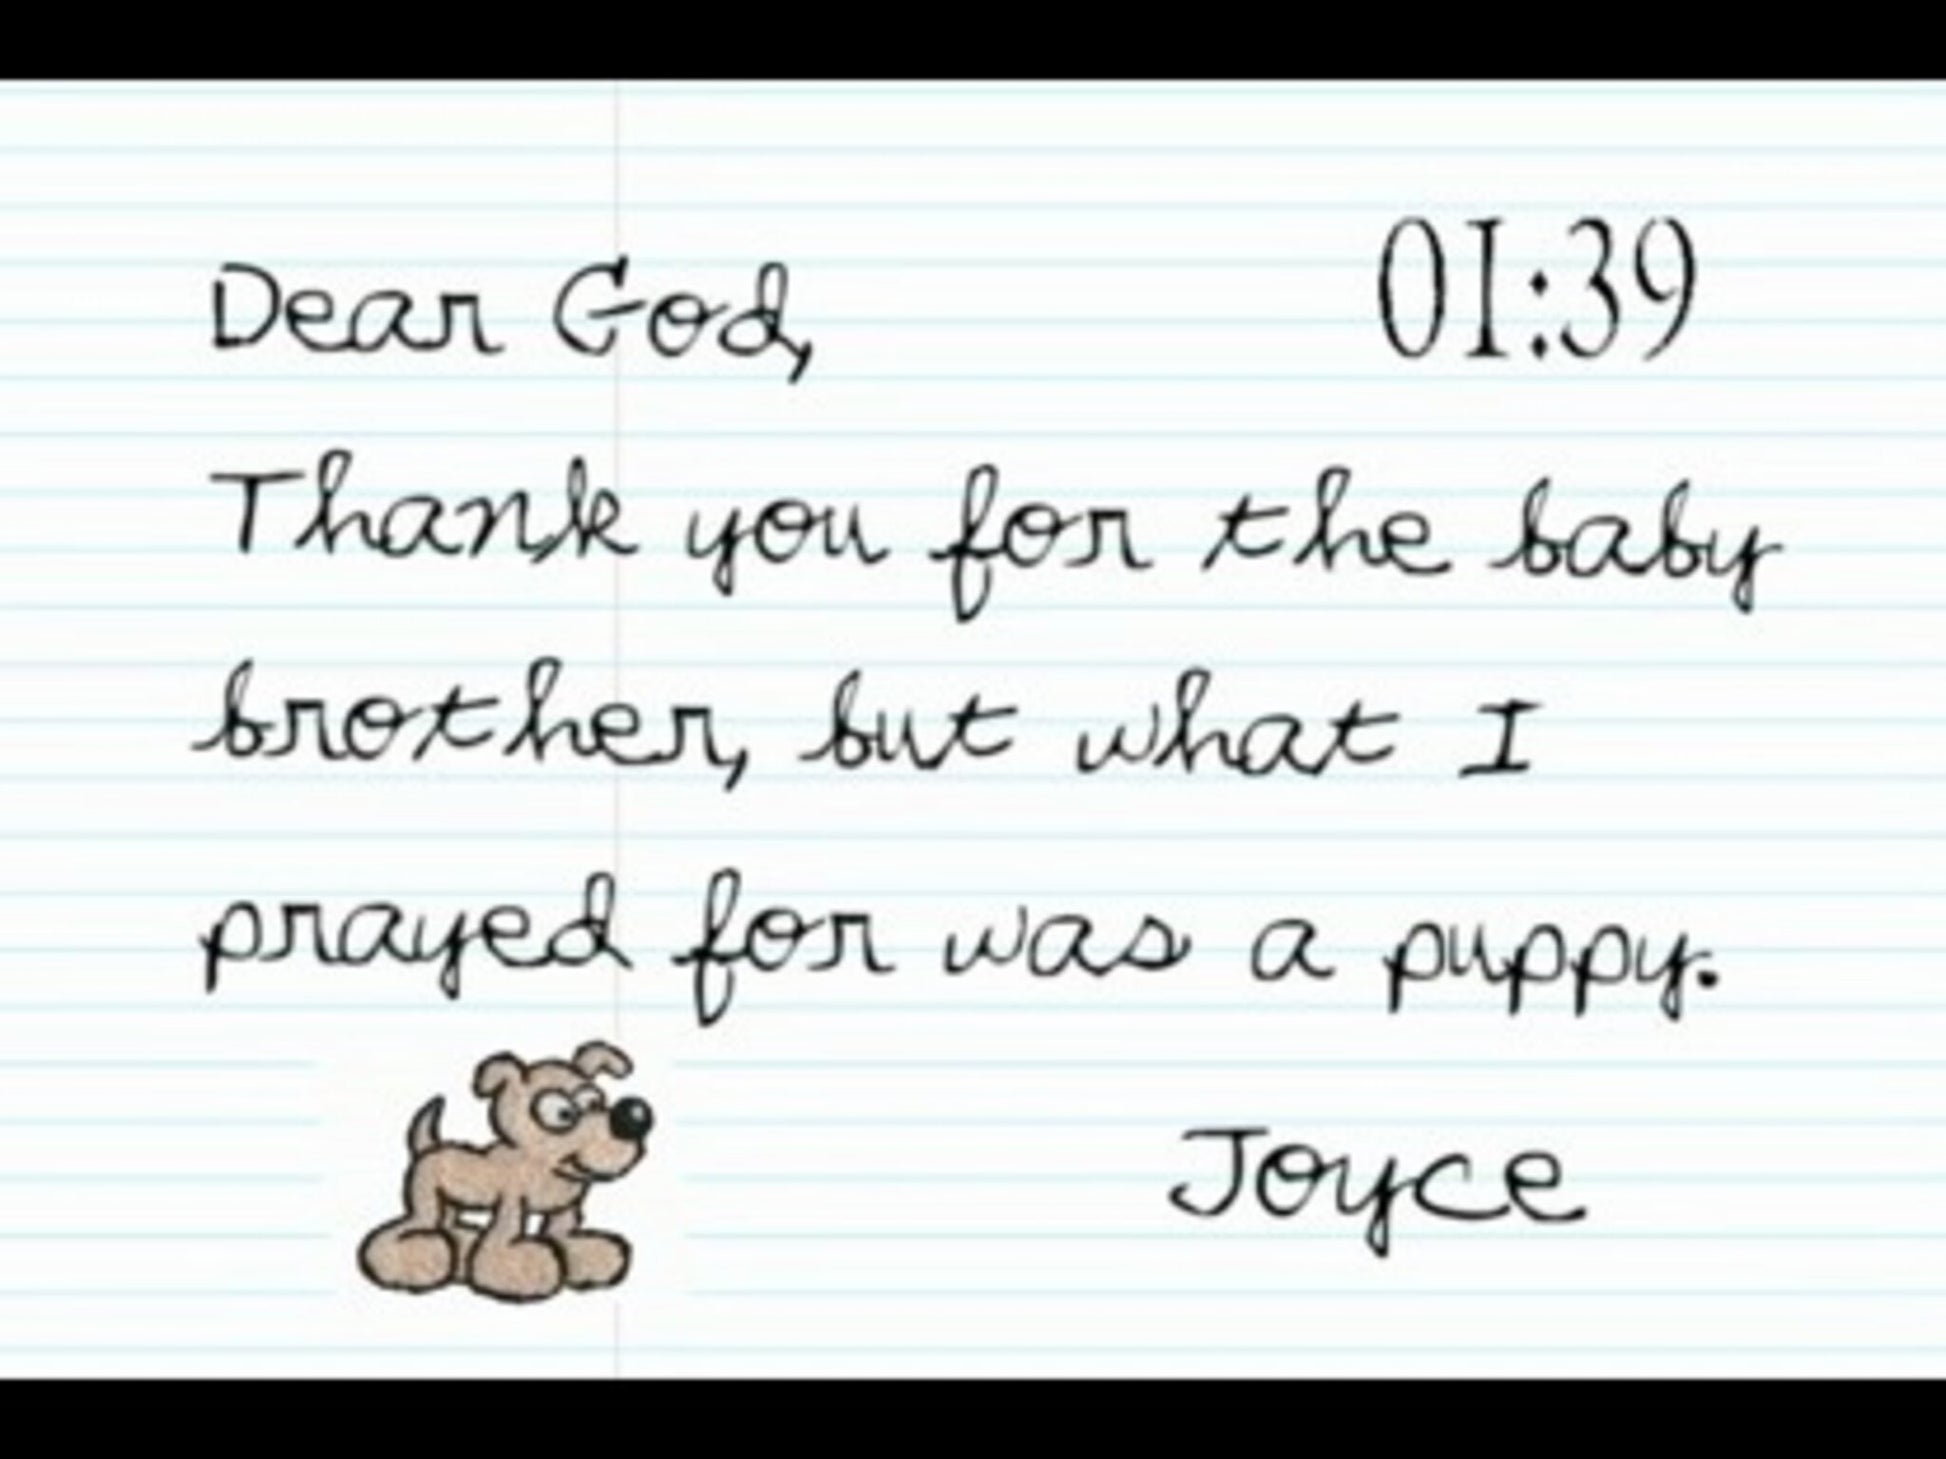 Dear God, 01:39
Thank you for the baby
brother, but what I
prayed for was a puppy.
Joyce